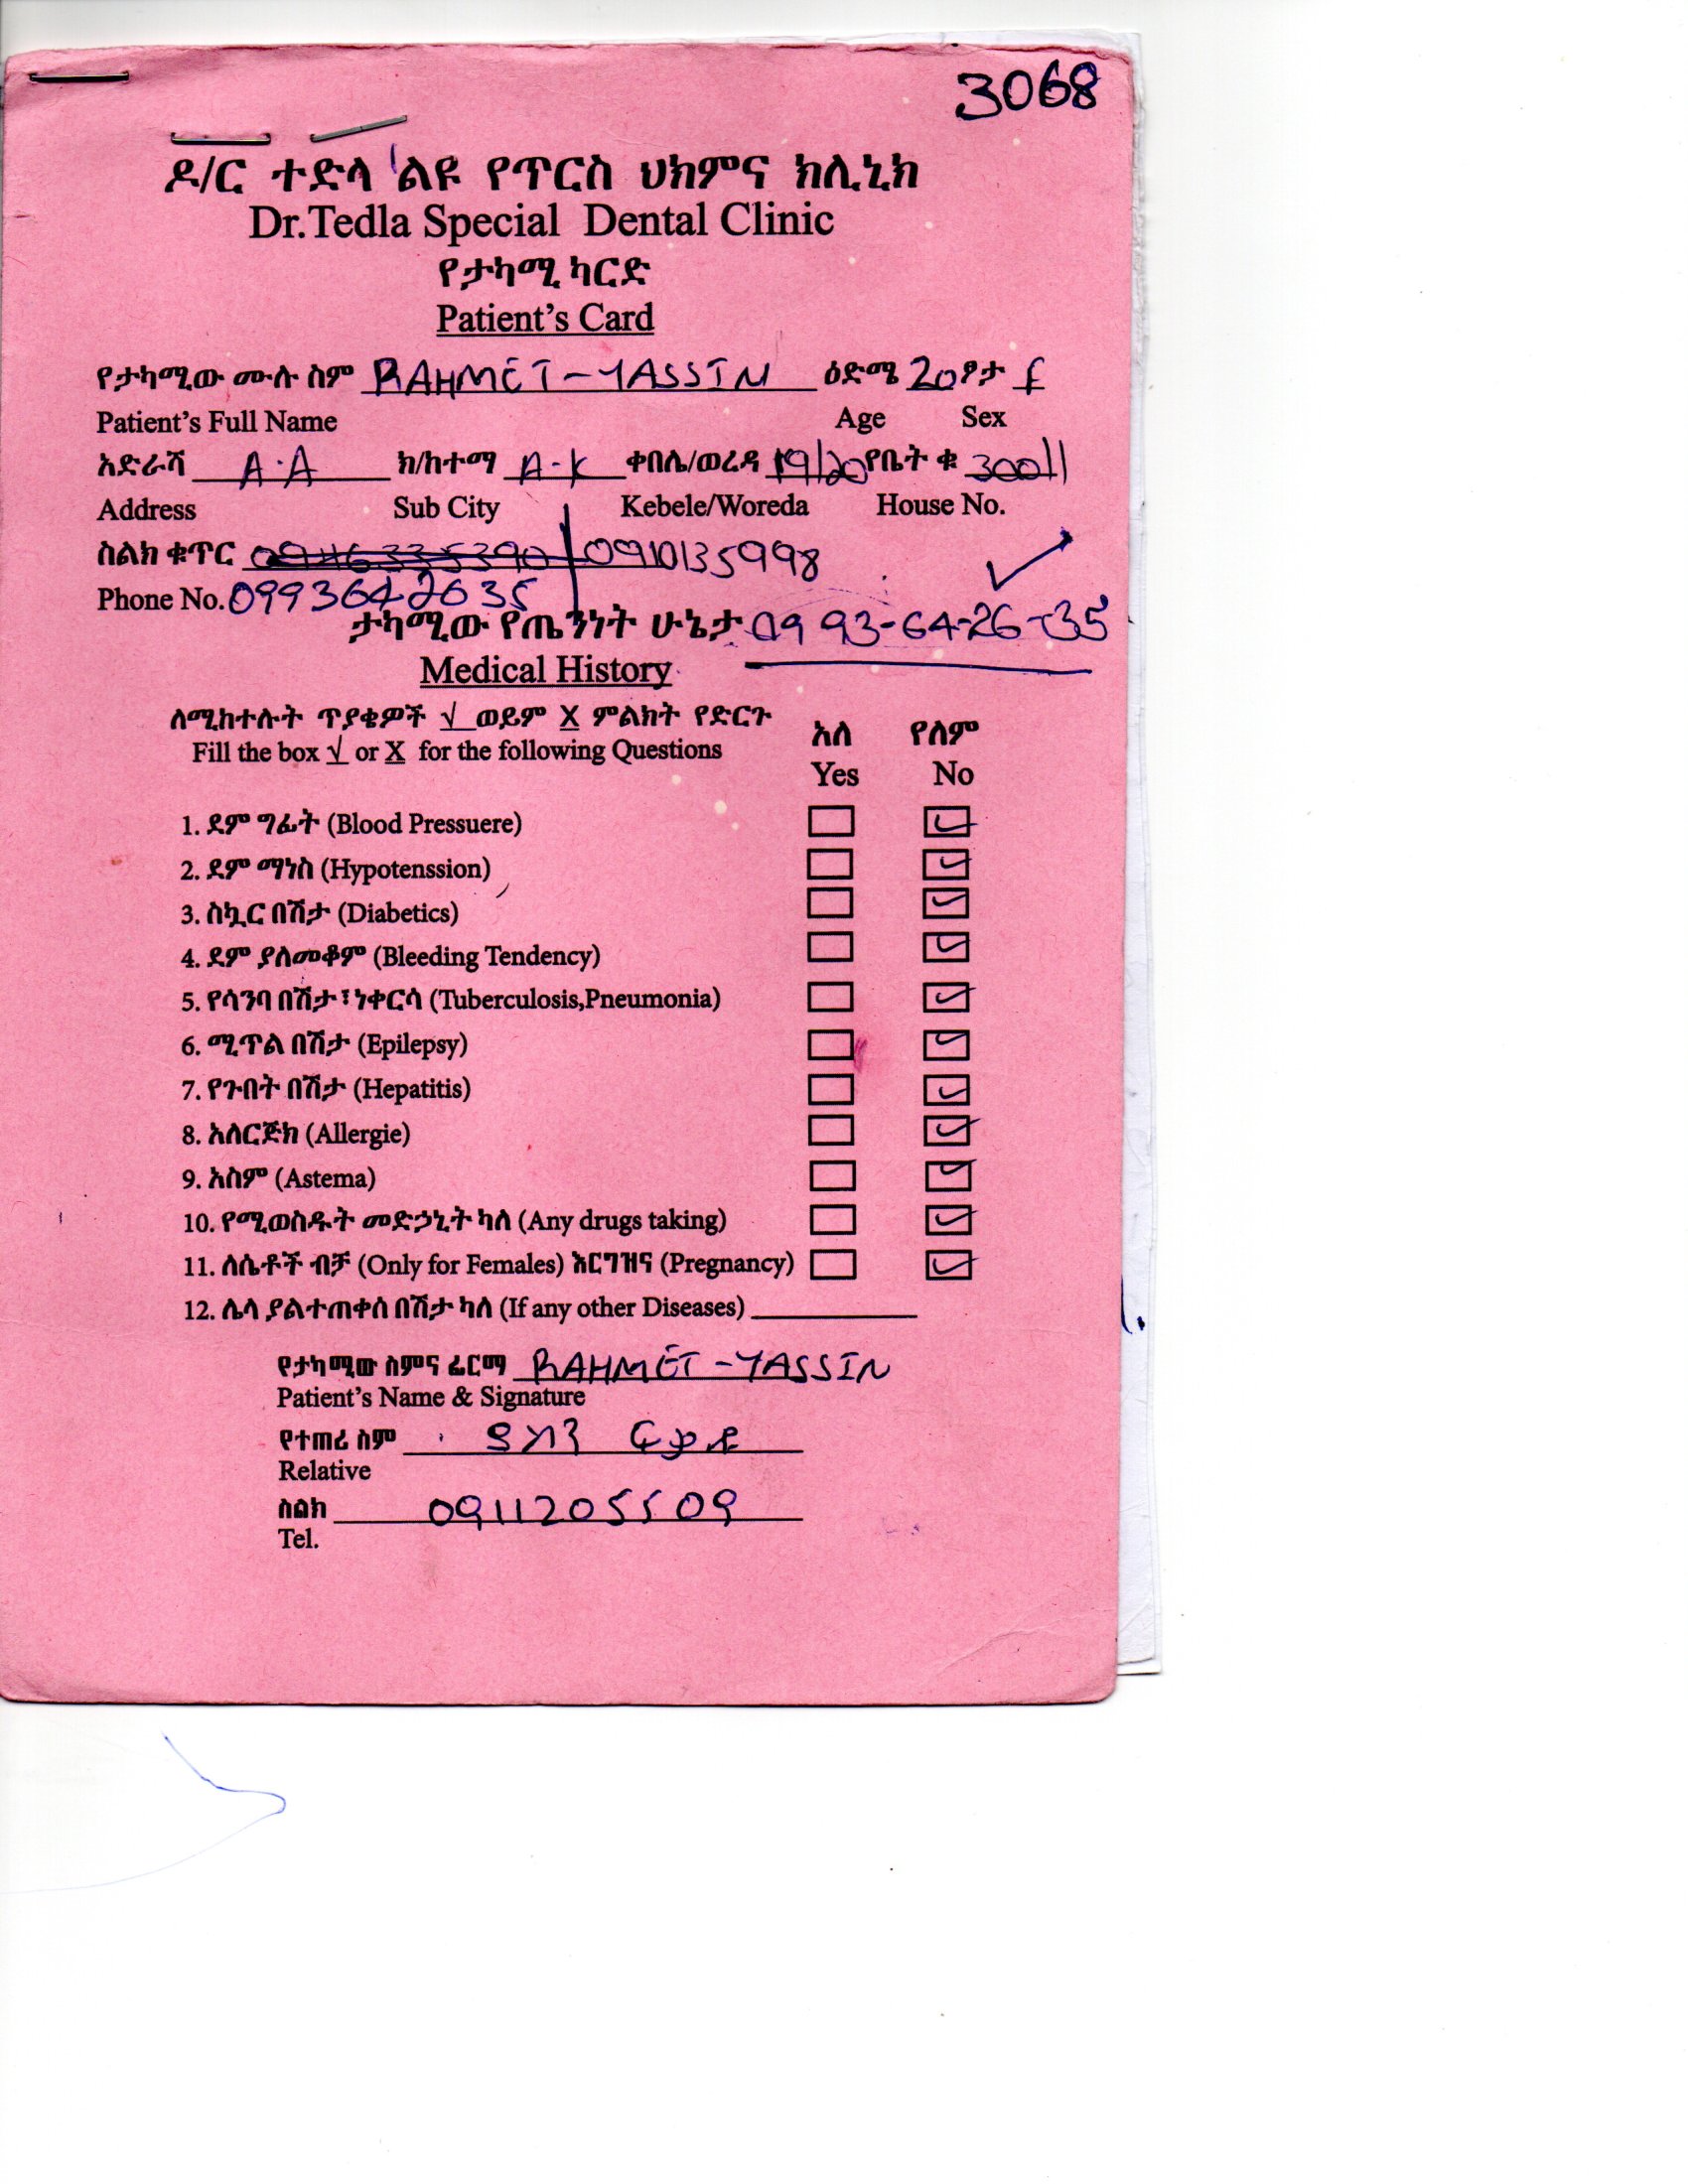 3068
ዶ/ር ተድላ ልዩ የጥርስ ህክምና ክሊኒክ
Dr.Tedla Special Dental Clinic
የታካሚ ካርድ
Patient's Card
የታካሚው ሙሉ ስም RAHMET-YASSIN ዕድሜ 20 ፆታ f
Patient's Full Name Age Sex
አድራሻ A.A ክ/ከተማ A-K ቀበሌ/ወረዳ 19/20 የቤት ቁ
Address Sub City Kebele/Woreda House No.
ስልክ ቁጥር 0910135998
Phone No. 0993642635
ታካሚው የጤንነት ሁኔታ 09 93-64-26-35
Medical History
ለሚከተሉት ጥያቄዎች √ ወይም X ምልክት የድርጉ አለ የለም
Fill the box √ or X for the following Questions Yes No
1. ደም ግፊት (Blood Pressuere) ✓
2. ደም ማነስ (Hypotenssion) ✓
3. ስኳር በሽታ (Diabetics) ✓
4. ደም ያለመቆም (Bleeding Tendency) ✓
5. የሳንባ በሽታ፣ነቀርሳ (Tuberculosis,Pneumonia) ✓
6. ሚጥል በሽታ (Epilepsy) ✓
7. የጉበት በሽታ (Hepatitis) ✓
8. አለርጅክ (Allergie) ✓
9. አስም (Astema) ✓
10. የሚወስዱት መድኃኒት ካለ (Any drugs taking) ✓
11. ለሴቶች ብቻ (Only for Females) እርግዝና (Pregnancy) ✓
12. ሌላ ያልተጠቀሰ በሽታ ካለ (If any other Diseases)
የታካሚው ስምና ፊርማ RAHMET-YASSIN
Patient's Name & Signature
የተጠሪ ስም
Relative
ስልክ 0911205509
Tel.